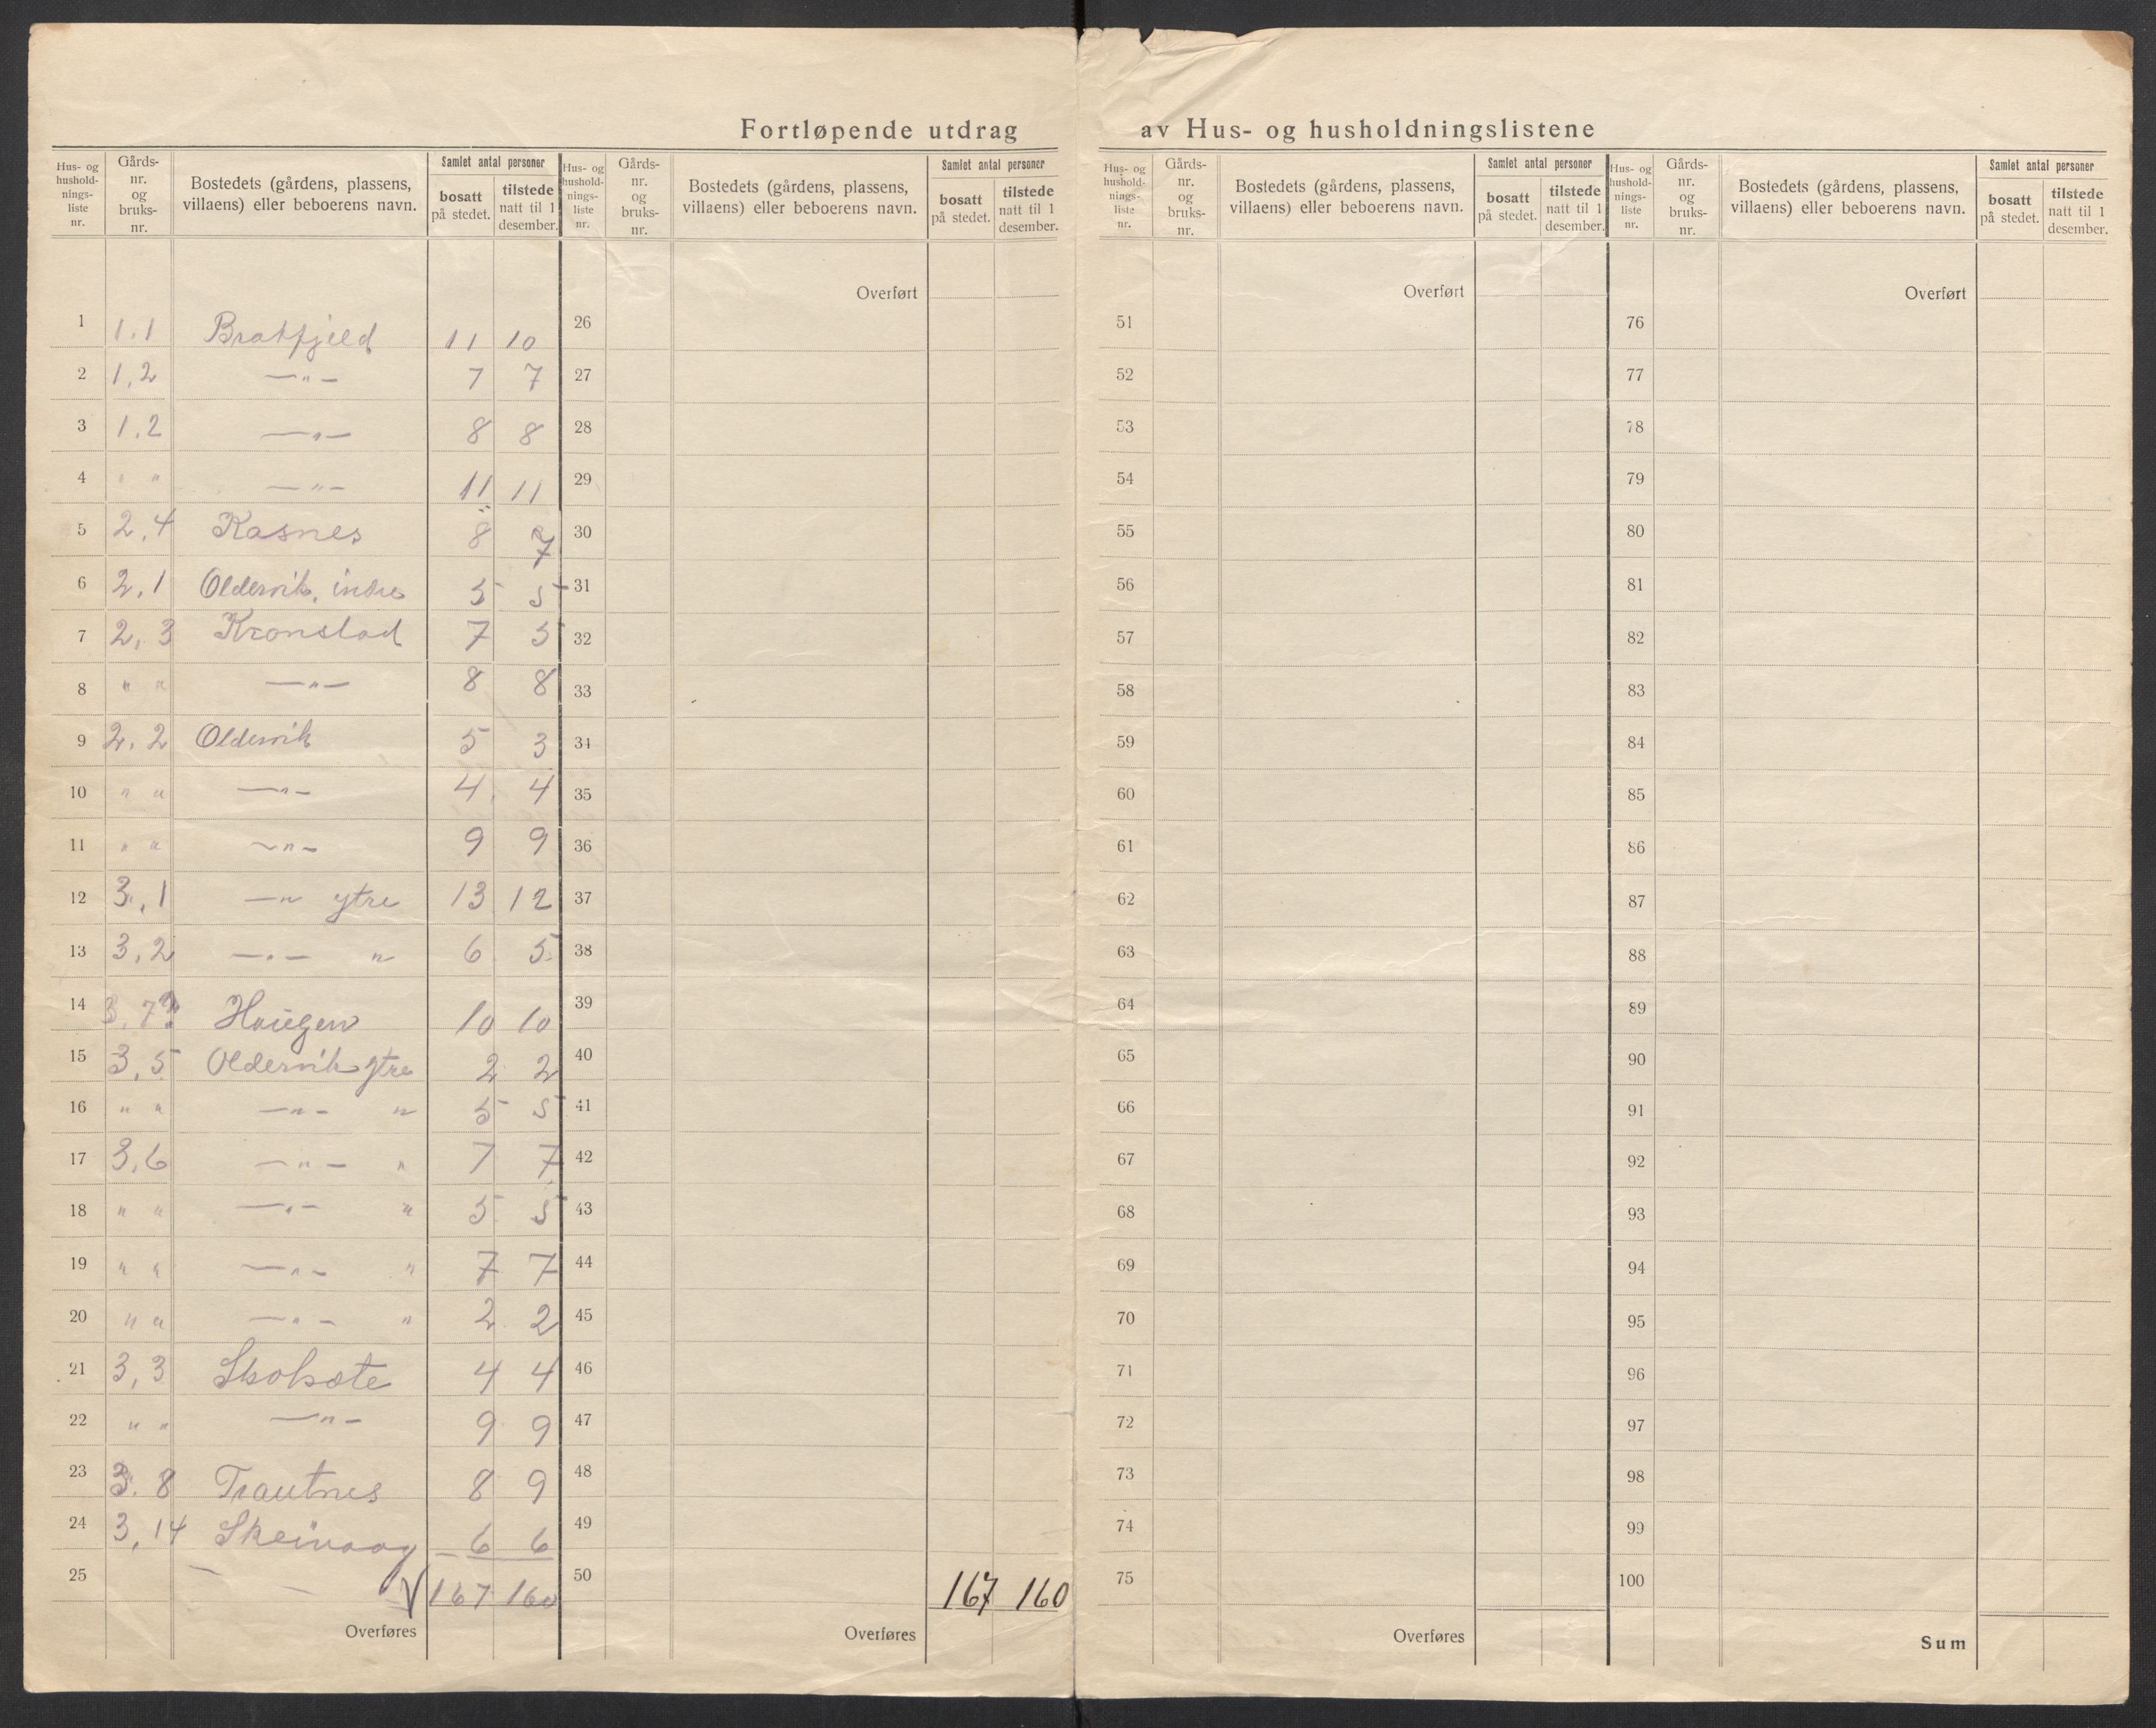 Fortløpende utdrag av Hus- og husholdningslistene
Hus- og hushold- nings- liste nr. Gårds- nr. og bruks- nr. Bostedets (gårdens, plassens, villaens) eller beboerens navn. Samlet antal personer bosatt på stedet. tilstede natt til 1 desember.
Hus- og hushold- nings- liste nr. Gårds- nr. og bruks- nr. Bostedets (gårdens, plassens, villaens) eller beboerens navn. Samlet antal personer bosatt på stedet. tilstede natt til 1 desember.
Hus- og hushold- nings- liste nr. Gårds- nr. og bruks- nr. Bostedets (gårdens, plassens, villaens) eller beboerens navn. Samlet antal personer bosatt på stedet. tilstede natt til 1 desember.
Hus- og hushold- nings- liste nr. Gårds- nr. og bruks- nr. Bostedets (gårdens, plassens, villaens) eller beboerens navn. Samlet antal personer bosatt på stedet. tilstede natt til 1 desember.
Overført Overført Overført
1 1.1 Bratfjeld 11 10 26 51 76
2 1,2 —"— 7 7 27 52 77
3 1,2 —"— 8 8 28 53 78
4 " " —"— 11 11 29 54 79
5 2,4 Kasnes 8 7 30 55 80
6 2,1 Oldervik, indre 5 5 31 56 81
7 2,3 Kronstad 7 5 32 57 82
8 " " —"— 8 8 33 58 83
9 2,2 Oldervik 5 3 34 59 84
10 " " —"— 4 4 35 60 85
11 " " —"— 9 9 36 61 86
12 3,1 —"— ytre 13 12 37 62 87
13 3,2 —"— " 6 5 38 63 88
14 3,7? Haugen 10 10 39 64 89
15 3,5 Oldervik ytre 2 2 40 65 90
16 " " —"— " 5 5 41 66 91
17 3,6 —"— " 7 7 42 67 92
18 " " —"— " 5 5 43 68 93
19 " " —"— " 7 7 44 69 94
20 " " —"— " 2 2 45 70 95
21 3,3 Skolsæte 4 4 46 71 96
22 " " —"— 9 9 47 72 97
23 3.8 Trautnes 8 9 48 73 98
24 3,14 Skeivaag 6 6 49 74 99
25 167 160 50 167 160 75 100
Overføres Overføres Overføres Sum